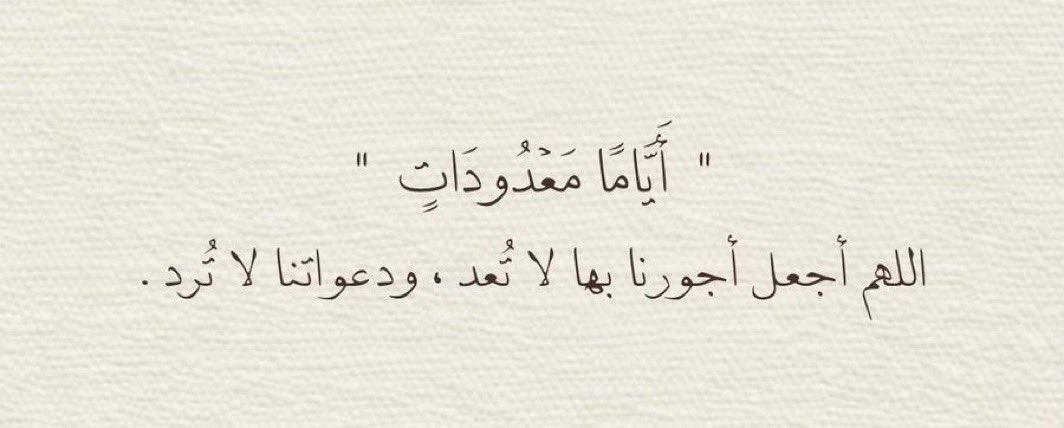 " أَيَّامًا مَعْدُودَاتٍ "
اللهم أجعل أجورنا بها لا تُعد ، ودعواتنا لا تُرد .